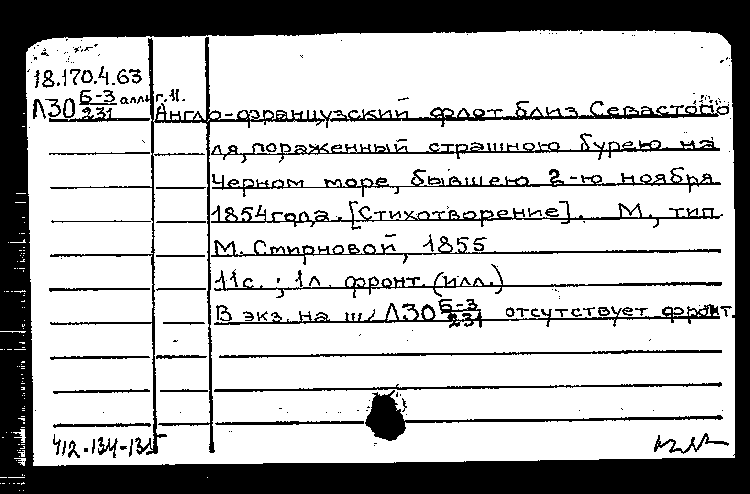 18.170.4.63
Л30 Б-3/231 аллиг. 11.
Англо-французский флот близ Севастопо
ля, пораженный страшною бурею на
Черном море, бывшею 2-ю ноября
1854 года. [Стихотворение]. М., тип.
М. Смирновой, 1855
11с. ; 1л. фронт. (илл.)
В экз. на ш/ Л30 Б-3/231 отсутствует фронт.
412-134-135